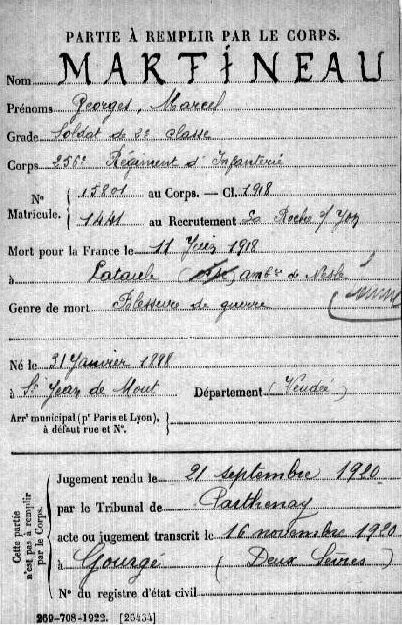 PARTIE À REMPLIR PAR LE CORPS.
Nom MARTINEAU
Prénoms Georges, Marcel
Grade Soldat de 2e classe
Corps 256e Régiment d'Infanterie
N° Matricule. { 15801 au Corps. — Cl. 1918
1441 au Recrutement La Roche s/ Yon
Mort pour la France le 11 Juin 1918
à Lataule amb ce de
Genre de mort Blessure de guerre
Né le 21 Janvier 1898
à St Jean de Mont Département (Vendée)
Arrt municipal (pr Paris et Lyon), }
à défaut rue et N°.
Cette partie n'est pas à remplir par le Corps.
Jugement rendu le 21 septembre 1920
par le Tribunal de Parthenay
acte ou jugement transcrit le 16 novembre 1920
à Gourgé (Deux Sèvres)
N° du registre d'état civil
269-708-1922. [23434]